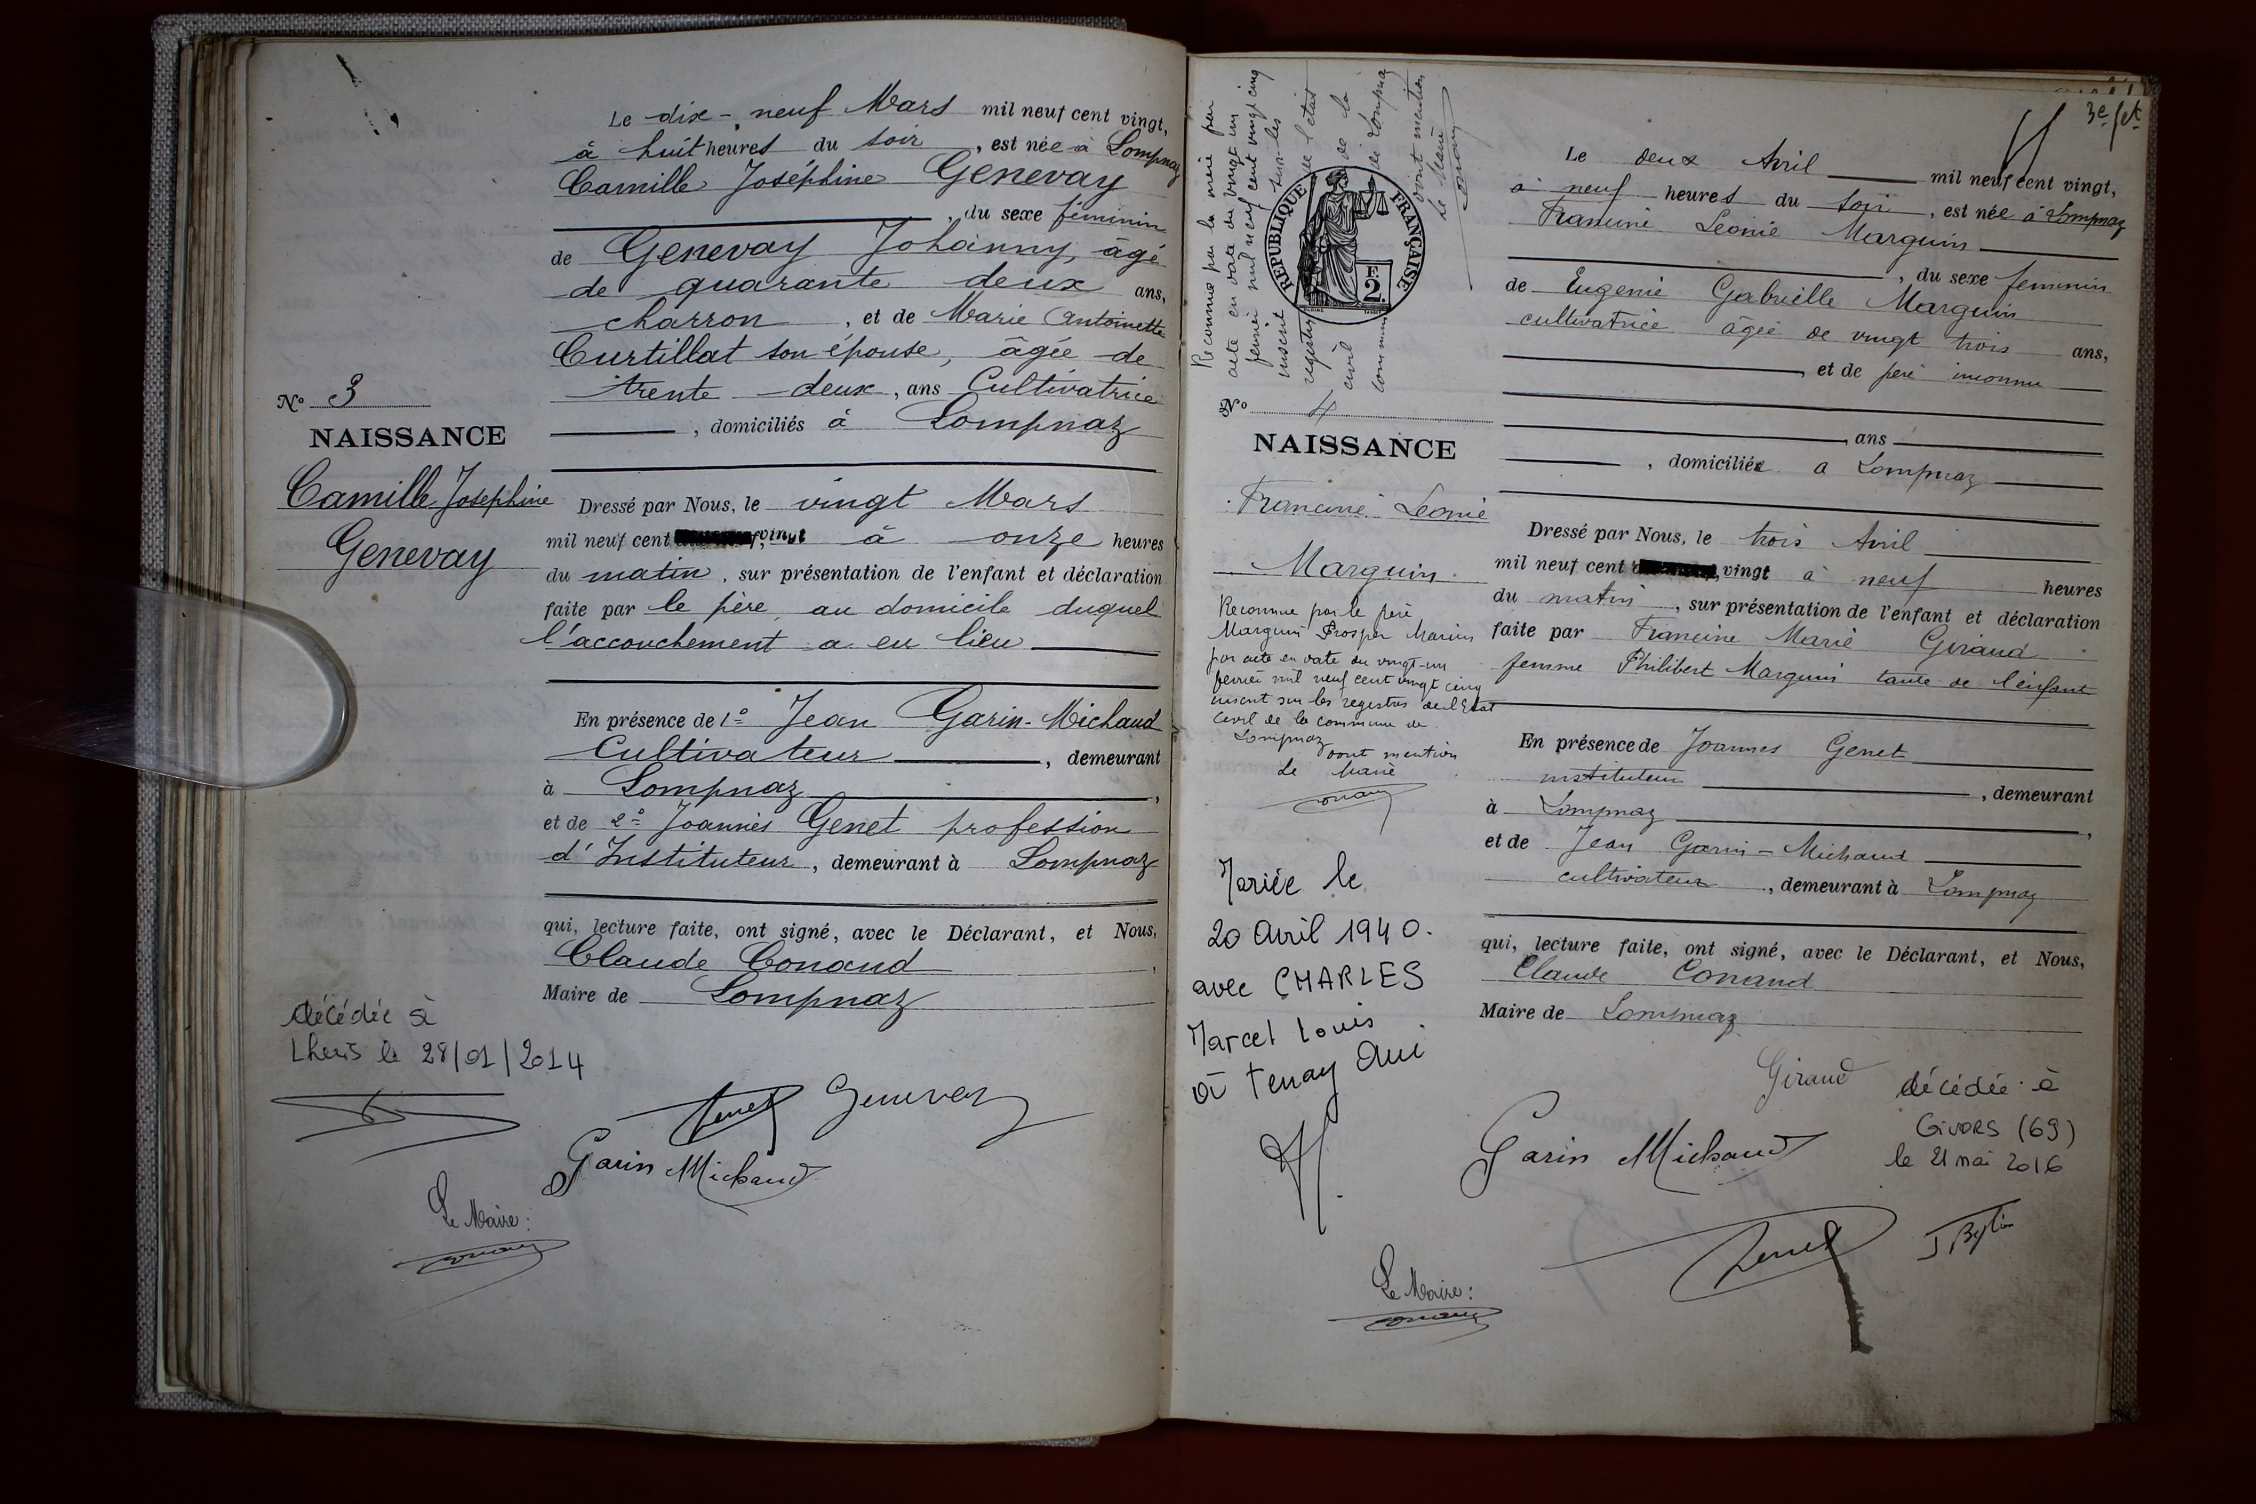 Le dix-neuf Mars mil neuf cent vingt,
à huit heures du soir, est née à Lompnaz
Camille Joséphine Genevay
, du sexe féminin
de Genevay Johanny, âgé
de quarante deux ans,
charron, et de Marie Antoinette
Curtillat son épouse, âgée de
trente-deux, ans Cultivatrice
, domiciliés à Lompnaz
No 3
NAISSANCE
Camille Josephine
Genevay
Dressé par Nous, le vingt Mars
mil neuf cent vingt à onze heures
du matin, sur présentation de l'enfant et déclaration
faite par le père, au domicile duquel
l'accouchement a eu lieu
En présence de 1º Jean Garin-Michaud
Cultivateur, demeurant
à Lompnaz,
et de 2º Joannès Genet profession
d'Instituteur, demeurant à Lompnaz
qui, lecture faite, ont signé, avec le Déclarant, et Nous,
Claude Conand,
Maire de Lompnaz
décédée à
le 28/01/2014
Genet Genevay
Garin Michaud
Le Maire:
Conand
3e fet
Reconnue par la mère par
acte en date du vingt un
février mil neuf cent vingt cinq
inscrit sur les
registres de l'état
civil de la
commune de Lompnaz
dont mention
Le Maire
Conand
RÉPUBLIQUE FRANÇAISE
2 F.
Le deux Avril mil neuf cent vingt,
à neuf heures du soir, est née à Lompnaz
Francine Leonie Marguin
, du sexe feminin
de Eugenie Gabrielle Marguin
cultivatrice âgée de vingt trois ans,
, et de père inconnu
, ans
, domiciliée a Lompnaz
No 4
NAISSANCE
Francine Leonie
Marguin
Dressé par Nous, le trois Avril
mil neuf cent vingt à neuf heures
du matin, sur présentation de l'enfant et déclaration
faite par Francine Marie Giraud
femme Philibert Marguin tante de l'enfant
Reconnue par le père
Marguin Prosper Marius
par acte en date du vingt-un
fevrier mil neuf cent vingt cinq
inscrit sur les registres de l'Etat
Civil de la commune de
Lompnaz
dont mention
Le Maire
Conand
En présence de Joannes Genet
instituteur, demeurant
à Lompnaz,
et de Jean Garin-Michaud
cultivateur, demeurant à Lompnaz
qui, lecture faite, ont signé, avec le Déclarant, et Nous,
Claude Conand
Maire de Lompnaz
Mariée le
20 Avril 1940.
avec CHARLES
Marcel Louis
à Tenay Ain
Giraud
Garin Michaud
décédée à
GIVORS (69)
le 21 mai 2016
Genet
Le Maire:
Conand